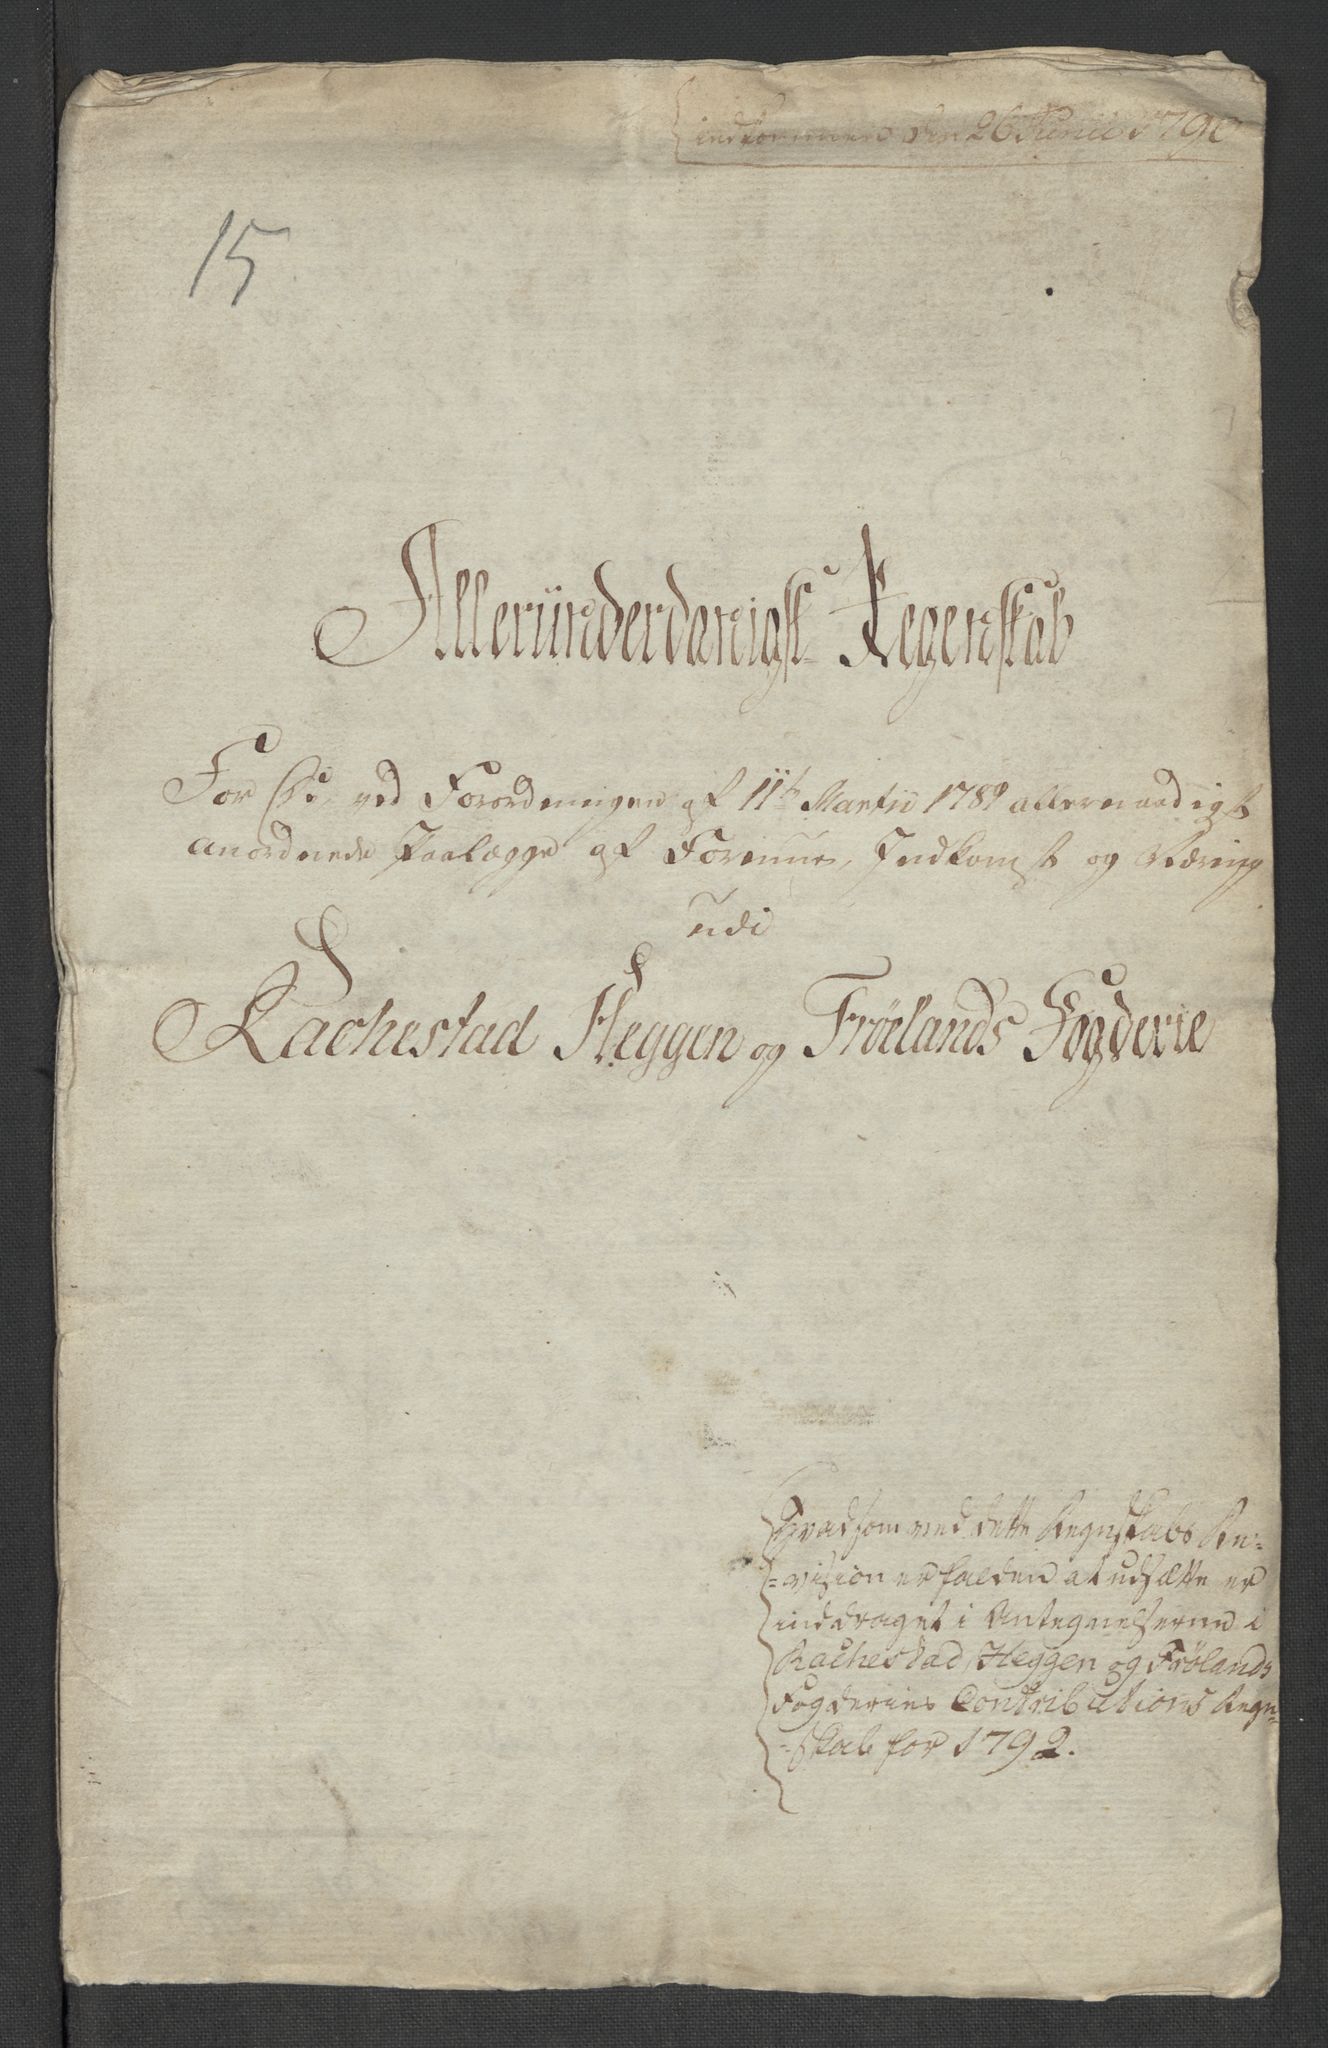 indkommen den 26 Junii 1790
15
Alleründerdanigst Regenskab
For De, ved Forordningen af 11te Martii 1789 allernaadigst
anordnede Paalægge af Formue, Indkomst og Næring
udi
Rachestad Heggen og Frøelands Fogderie
Hvad som ved dette Regnskabs Re=
=vision er falden at udsætte er
inddraget i Antegnelserne i
Rachestad, Heggen og Frølands
Fogderies Contributions Regn=
=skab for 1792.